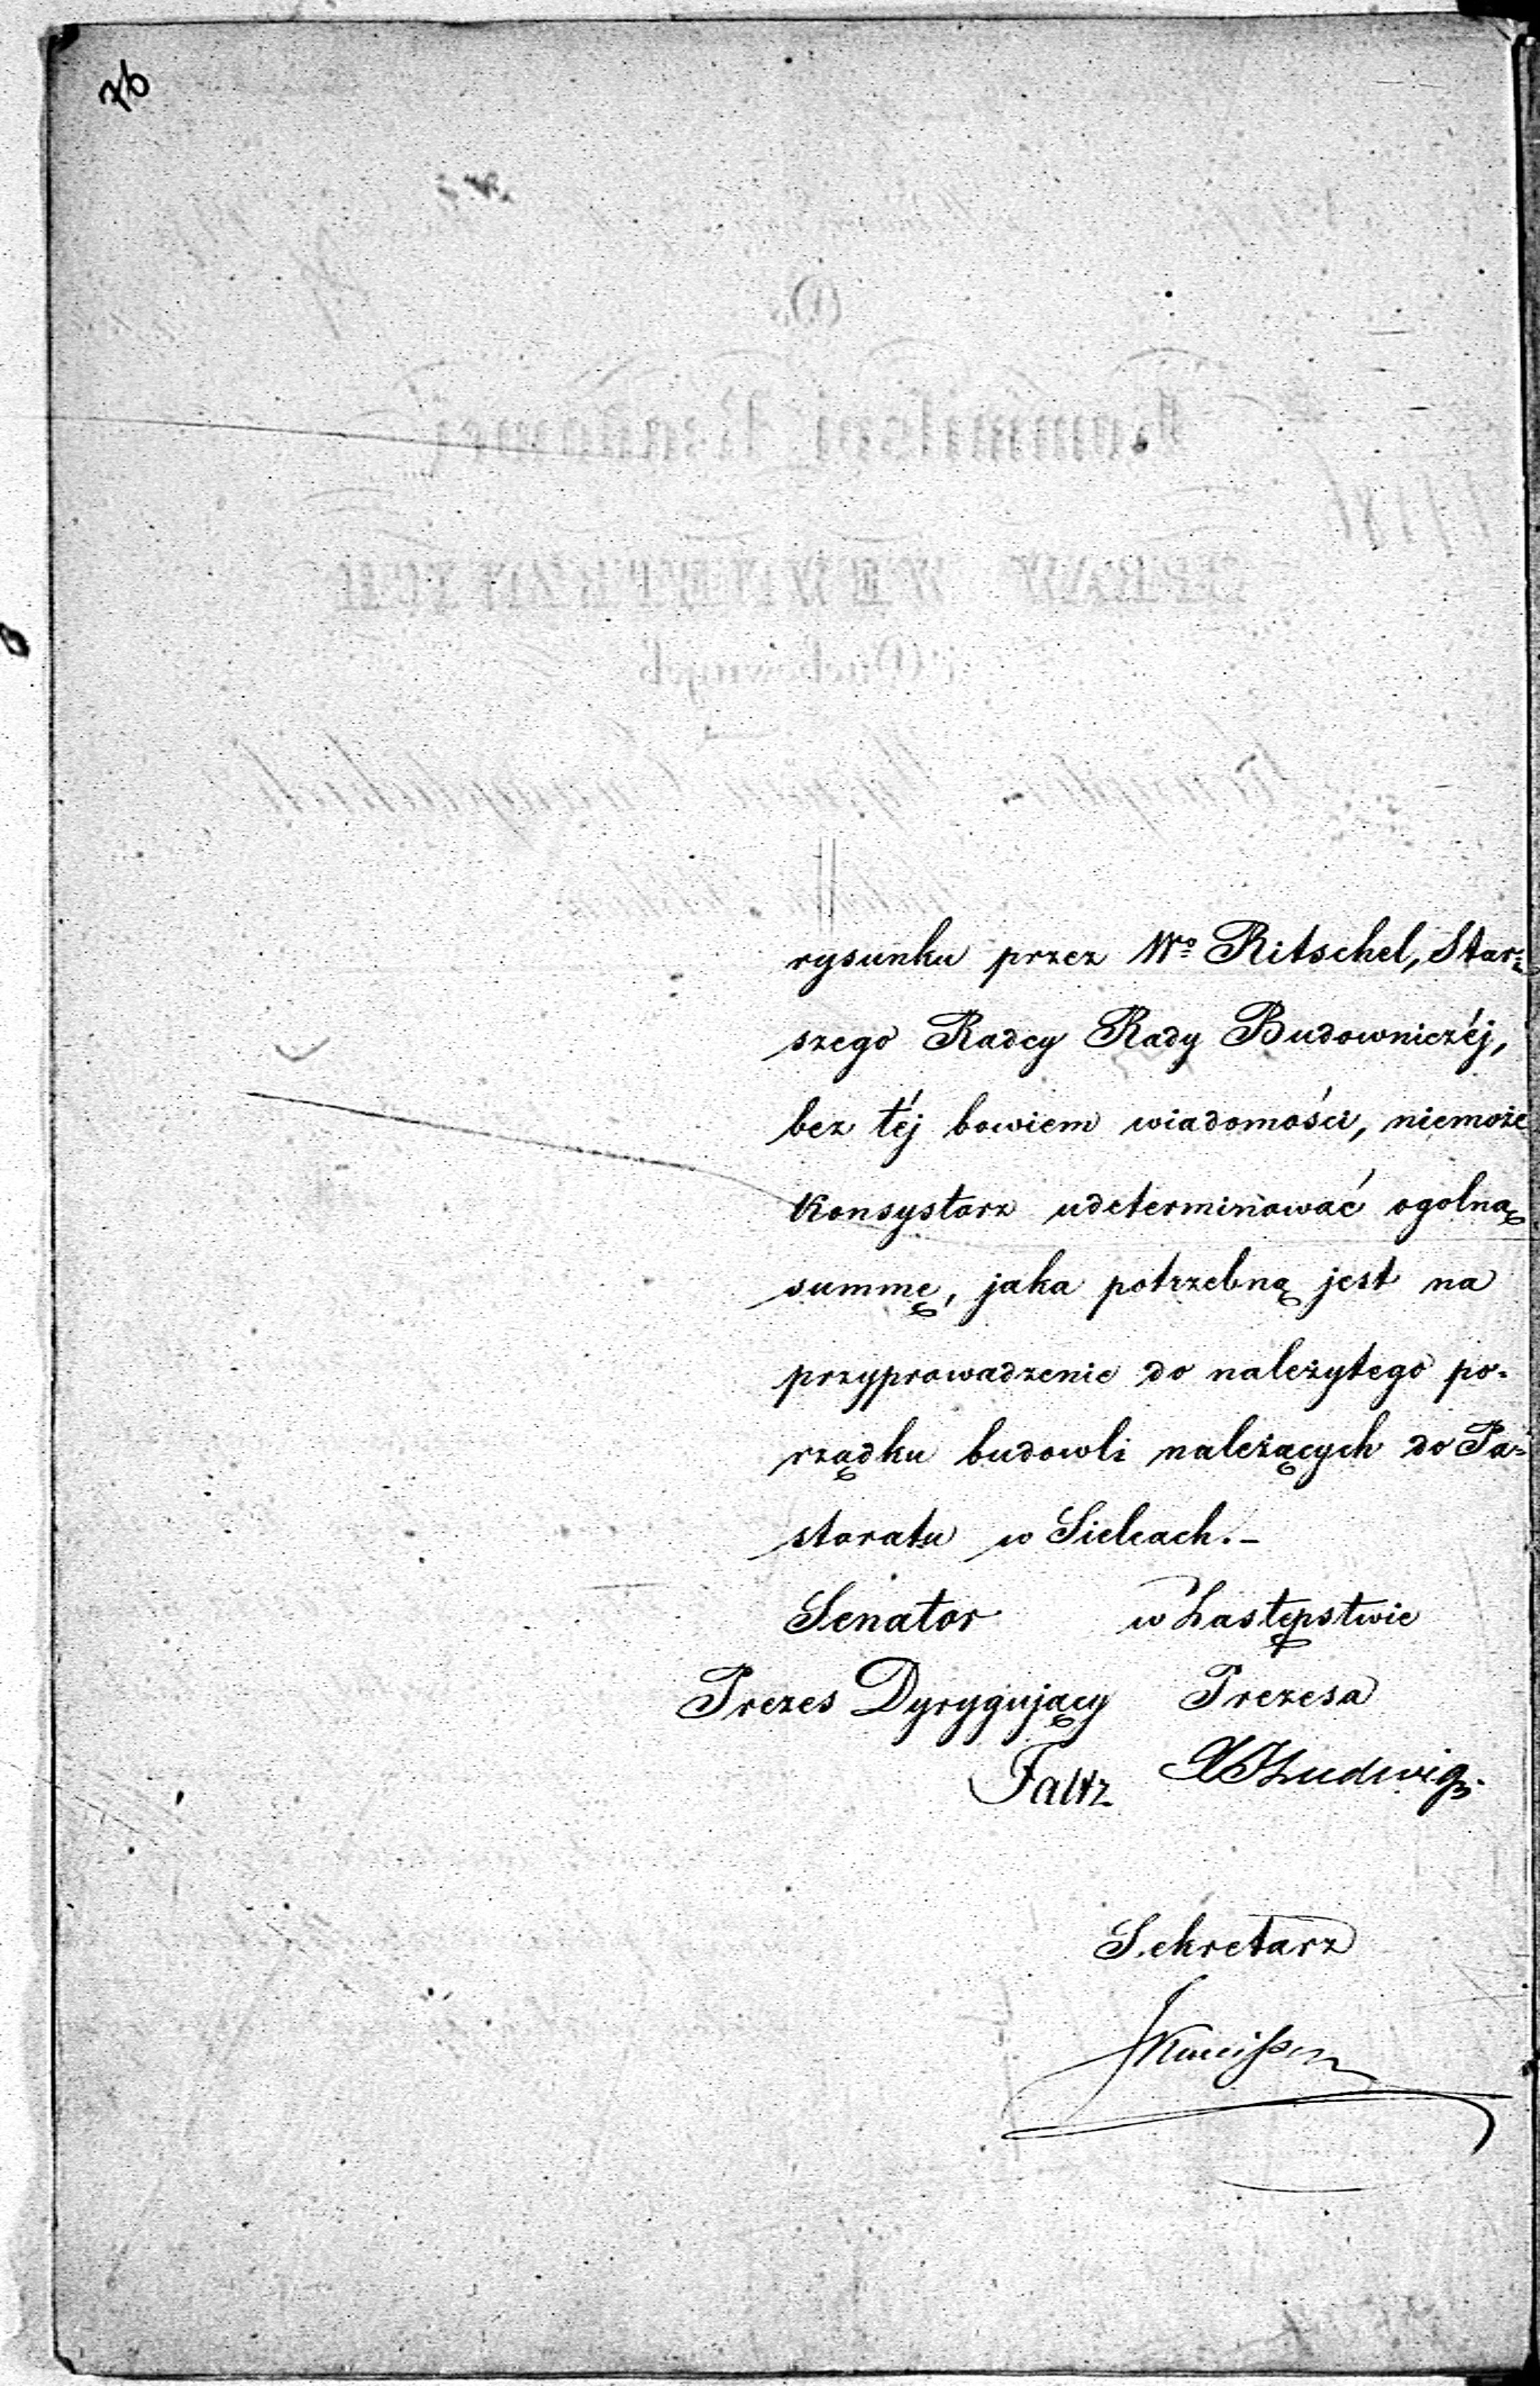 76
rysunku przez Wo Ritschel, Star=
szego Radcy Rady Budowniczéj,
bez téj bowiem wiadomości, niemoże
Konsystorz udeterminować ogolną
summę, jaka potrzebną jest na
przyprowadzenie do należytego po-
rządku budowli należących do Pa=
storatu w Sielcach.-
Senator w Zastępstwie
Prezes Dyrygujący Prezesa
Faltz Ludwig.
Sekretarz